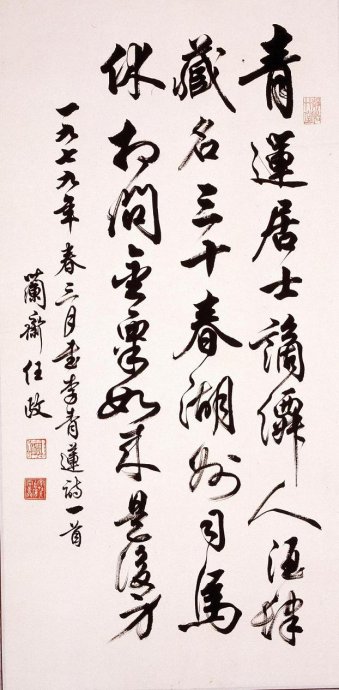 青蓮居士謫僊人酒肆
藏名三十春湖州司馬
休相問金粟如来是後身
一九七九年春三月書李青蓮詩一首
蘭齋任政